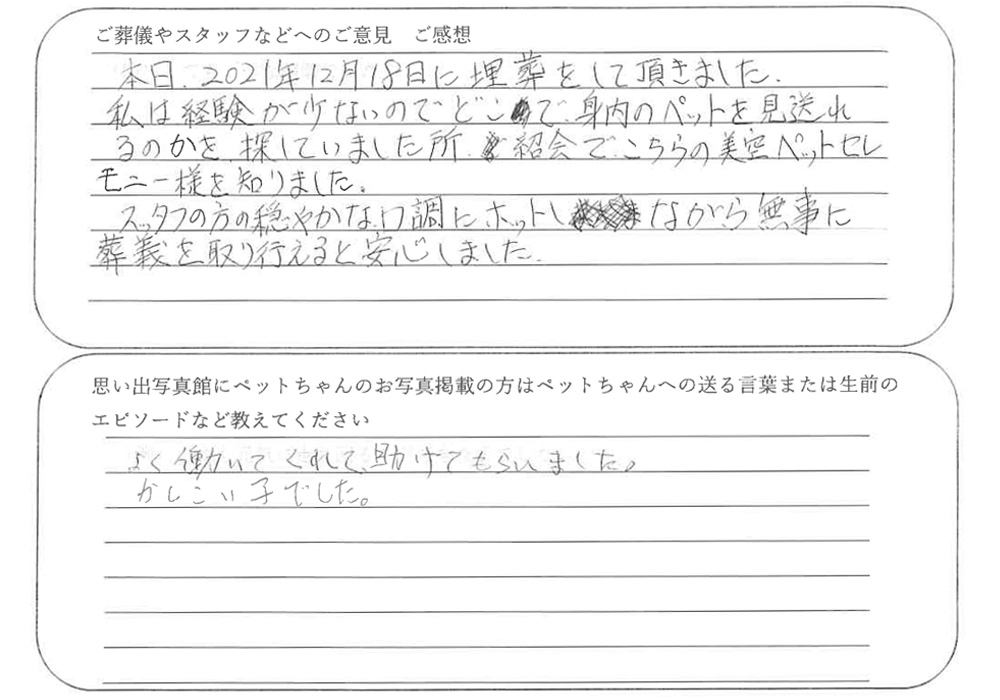 ご葬儀やスタッフなどへのご意見　ご感想
本日、2021年12月18日に埋葬をして頂きました。
私は経験が少ないのでどこで、身内のペットを見送れ
るのかを、探していました所、紹会で、こちらの美空ペットセレ
モニー様を知りました。
スッタフの方の穏やかな口調にホットしながら無事に
葬義を取り行えると安心しました。
思い出写真館にペットちゃんのお写真掲載の方はペットちゃんへの送る言葉または生前の
エピソードなど教えてください
よく働いてくれて、助けてもらいました。
かしこい子でした。